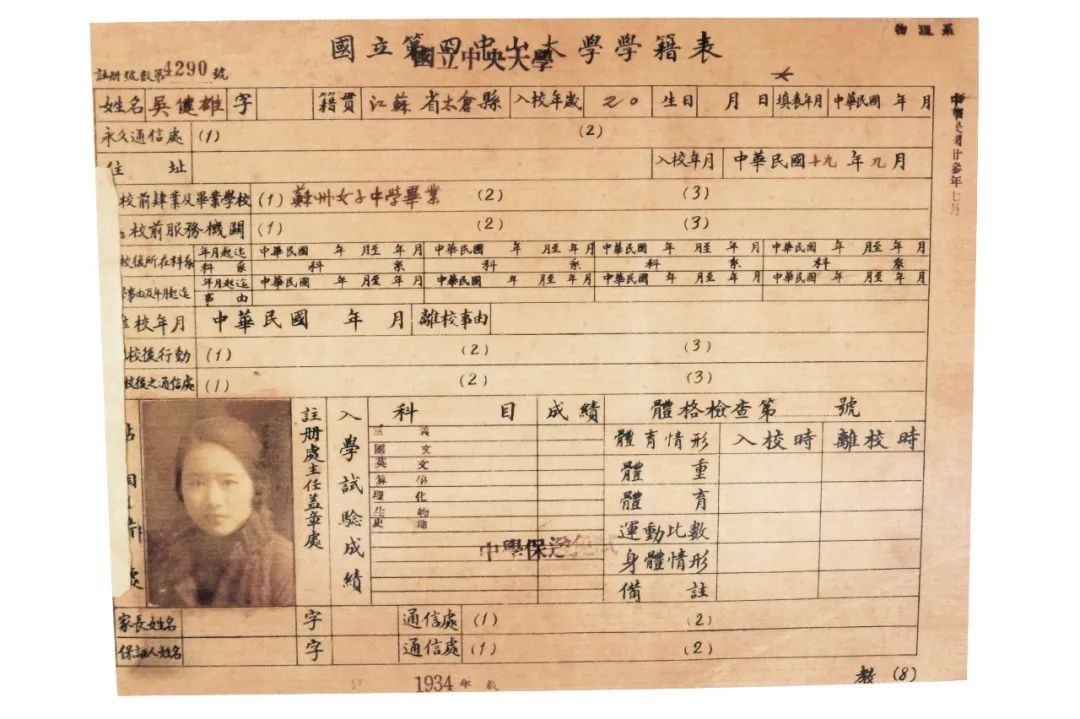 物理系
國立第四中山大學學籍表
國立中央大學
註冊號數第4290號
姓名 吳健雄 字 籍貫 江蘇省太倉縣 入校年歲 20 生日 月 日 填表年月 中華民國 年 月
中華民國廿參年七月
永久通信處 (1) (2)
住址 入校年月 中華民國十九年九月
校前肄業及畢業學校 (1) 蘇州女子中學畢業 (2) (3)
校前服務機關 (1) (2) (3)
校後所在科系 年月起迄 中華民國 年 月至 年 月 中華民國 年 月至 年 月 中華民國 年 月至 年 月 中華民國 年 月至 年 月
科系 科 系 科 系 科 系 科 系
事由及年月起迄 年月起迄 中華民國 年 月至 年 月 中華民國 年 月至 年 月 中華民國 年 月至 年 月 中華民國 年 月至 年 月
事由
校年月 中華民國 年 月 離校事由
校後行動 (1) (2) (3)
校後之通信處 (1) (2) (3)
註冊處主任蓋章處
入學試驗成績
科目 成績
國文
英文
理化
生物
史地
中學保送免試
體格檢查第 號
體育情形 入校時 離校時
體重
體育
運動比數
身體情形
備註
家長姓名 字 通信處 (1) (2)
保証人姓名 字 通信處 (1) (2)
1934年
教 (8)